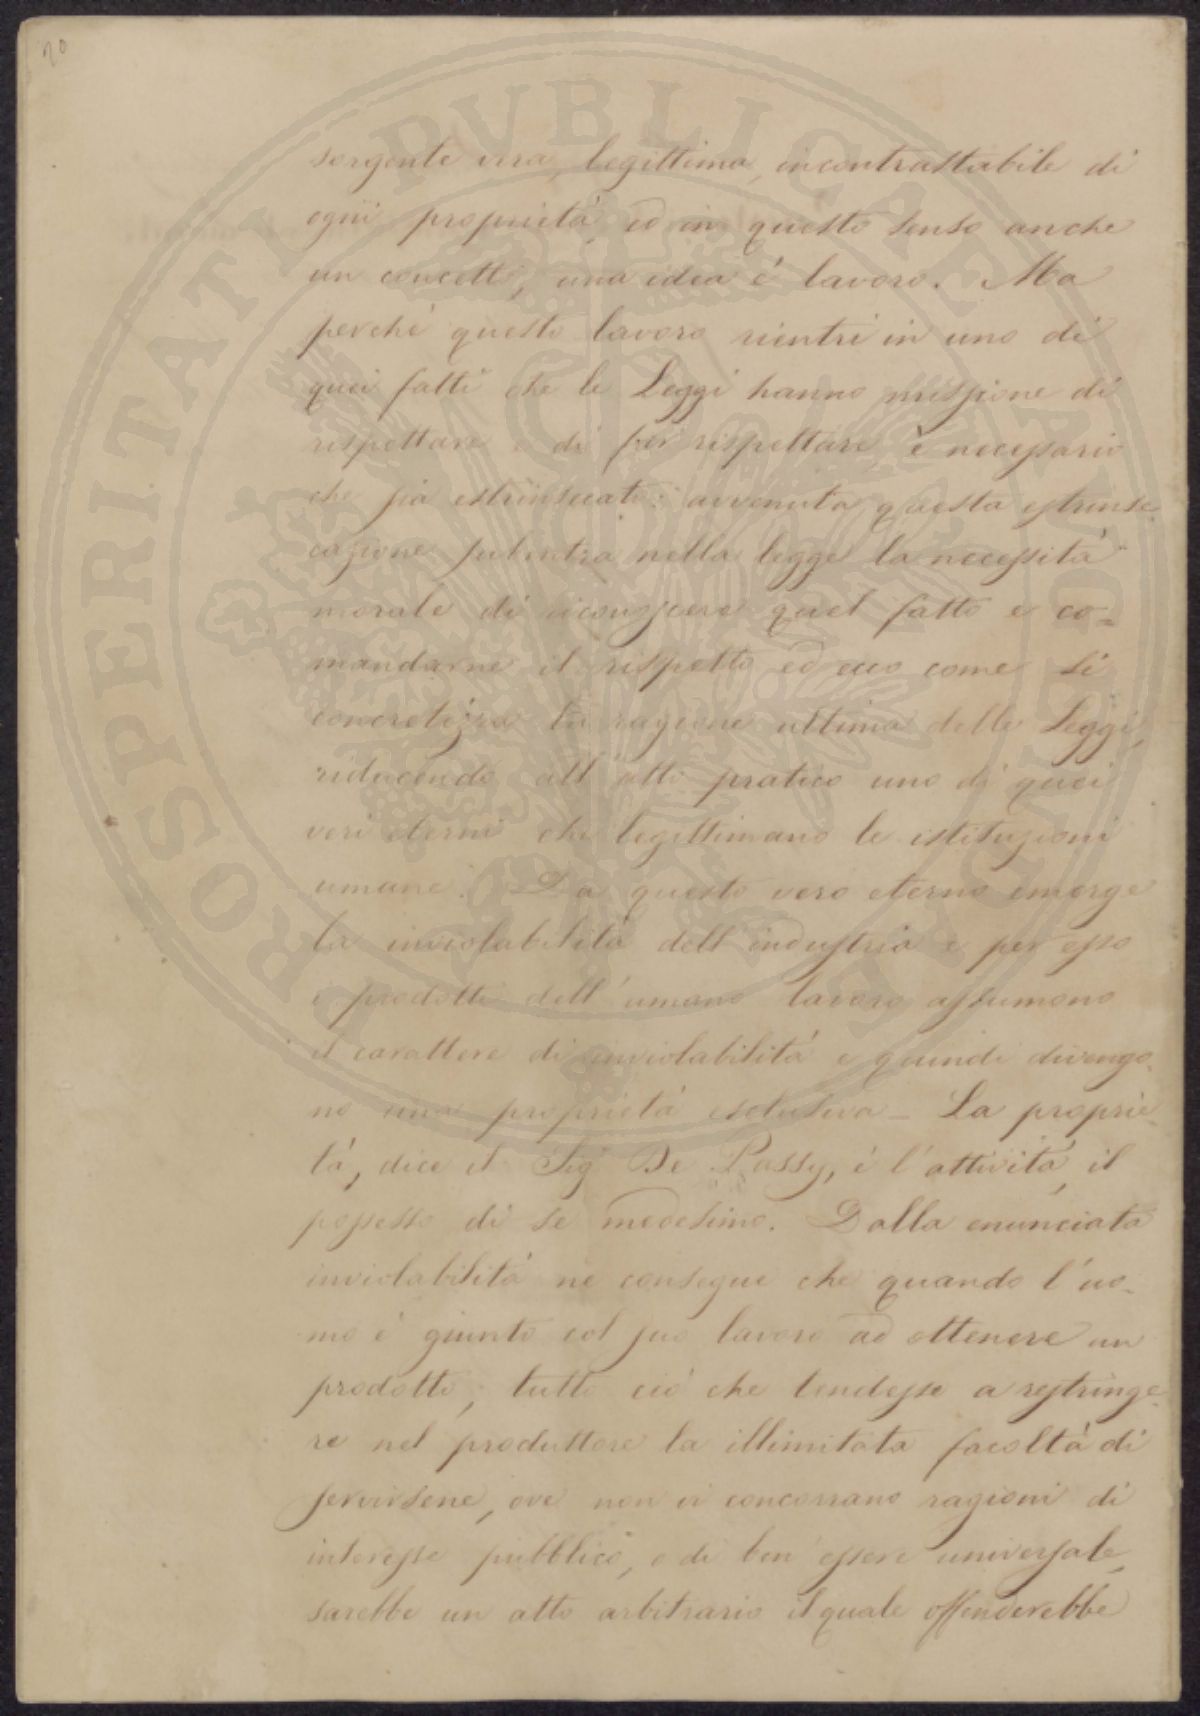 20
sorgente vera, legittima, incontrastabile di
ogni proprietà, ed in questo senso anche
un concetto, una idea è lavoro. Ma
perchè questo lavoro rientri in uno di
quei fatti che le Leggi hanno missione di
rispettare e di far rispettare, è necessario
che sia estrinsecato: avvenuta questa estrinse-
cazione subentra nella legge la necessità
morale di riconoscere quel fatto e co=
mandarne il rispetto ed ecco come si
concretizza la ragione ultima delle Leggi,
riducendo all'atto pratico uno di quei
veri eterni che legittimano le istituzioni
umane. Da questo vero eterno emerge
la inviolabilità dell'industria e per esso
i prodotti dell'umano lavoro assumono
il carattere di inviolabilità e quindi divengo-
no una proprietà esclusiva – La proprie-
tà, dice il Sig De Passy, è l'attività, il
possesso di se medesimo. Dalla enunciata
inviolabilità ne consegue che quando l'uo-
mo è giunto col suo lavoro ad ottenere un
prodotto, tutto ciò che tendesse a restringe-
re nel produttore la illimitata facoltà di
servirsene, ove non vi concorrano ragioni di
interesse pubblico, e di ben essere universale,
sarebbe un atto arbitrario il quale offenderebbe
PROSPERITATI PVBLICAE AVGENDAE